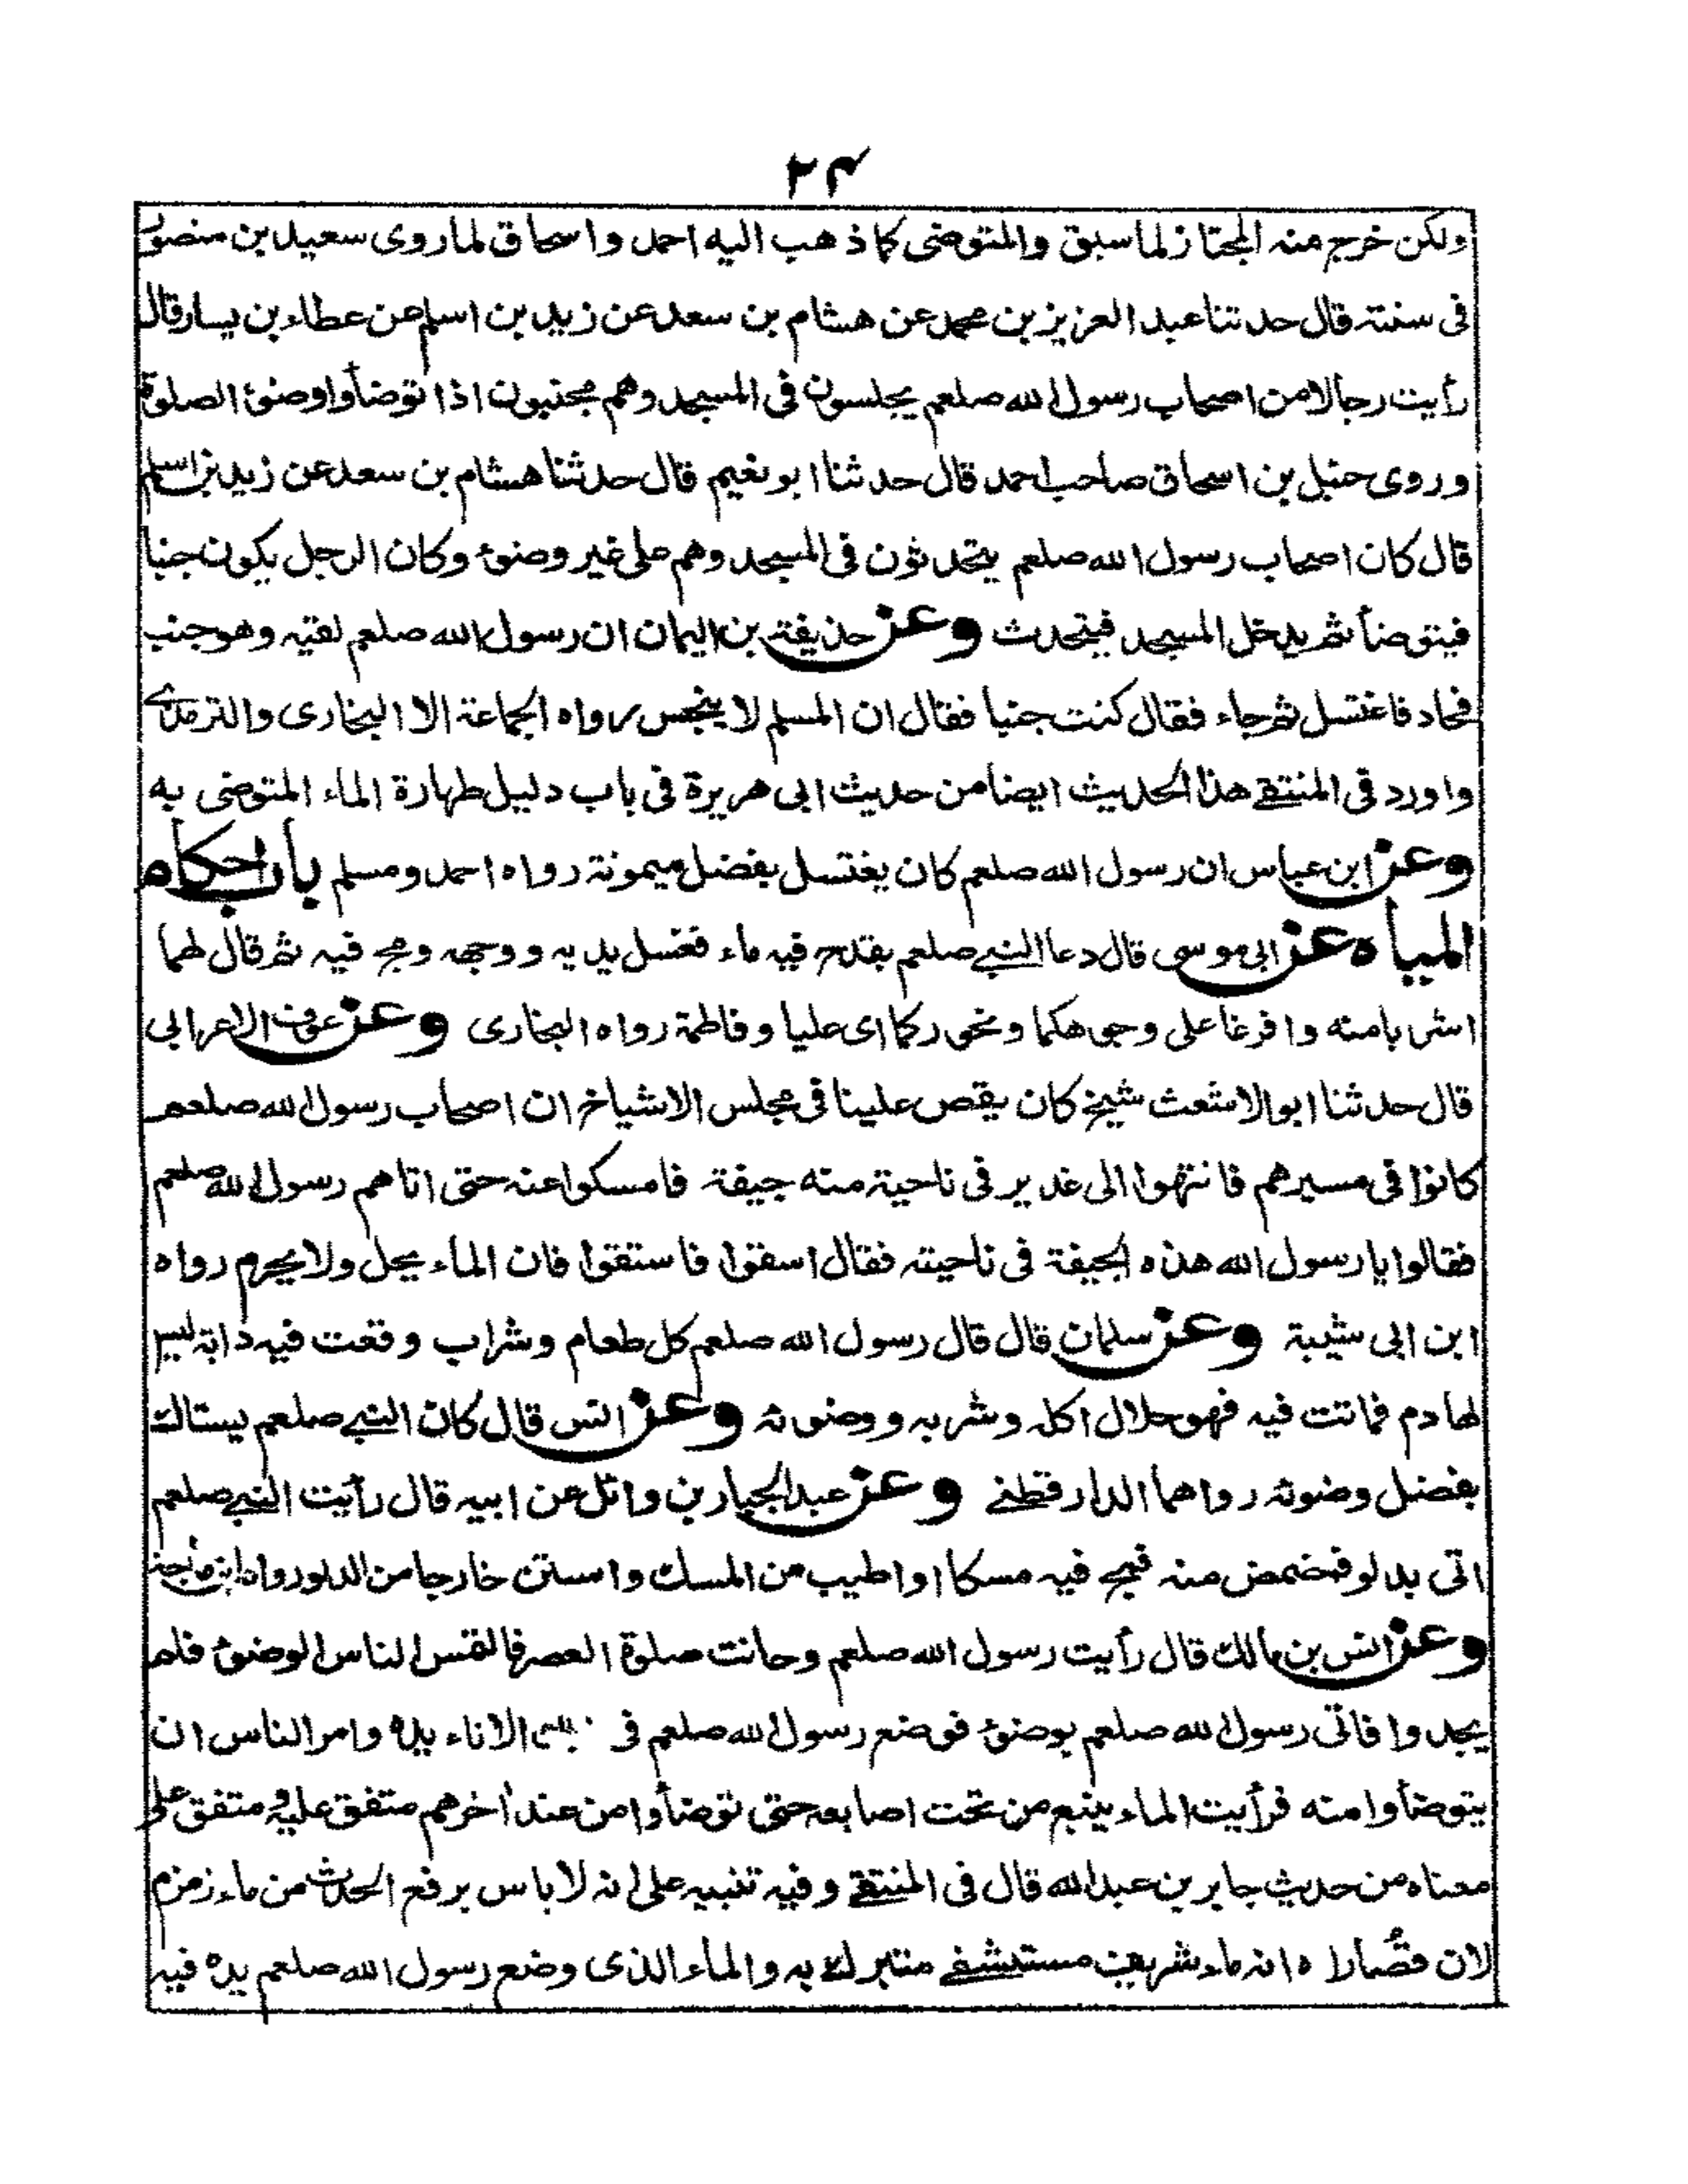 ٢٤
ولكن خرج منه المجتاز لما سبق والمتوضى كما ذهب اليه احمد واسحاق لما روى سعيد بن منصور
فى سننه قال حدثنا عبد العزيز بن محمد عن هشام بن سعد عن زيد بن اسلم عن عطاء بن يسار قال
رأيت رجالا من اصحاب رسول الله صلعم يجلسون فى المسجد وهم مجنبون اذا توضأوا وضوء الصلوة
وروى حنبل بن اسحاق صاحب احمد قال حدثنا ابو نعيم قال حدثنا هشام بن سعد عن زيد بن اسلم
قال كان اصحاب رسول الله صلعم يتحدثون فى المسجد وهم على غير وضوء وكان الرجل يكون جنبا
فيتوضأ ثم يدخل المسجد فيتحدث وعن حذيفة بن اليمان ان رسول الله صلعم لقيه وهو جنب
فحاد فاغتسل ثم جاء فقال كنت جنبا فقال ان المسلم لا ينجس رواه الجماعة الا البخارى والترمذے
واورد فى المنتقے هذا الحديث ايضا من حديث ابى هريرة فى باب دليل طهارة الماء المتوضى به
وعن ابن عباس ان رسول الله صلعم كان يغتسل بفضل ميمونة رواه احمد ومسلم باب احكام
المياه عن ابى موسى قال دعا النبے صلعم بقدح فيه ماء فغسل يديه ووجهه ومج فيه ثم قال لهما
اشربا منه وافرغا على وجوهكما ونحوركما اى عليا وفاطمة رواه البخارى وعن عوف الاعرابى
قال حدثنا ابو الاشعث شيخ كان يقص علينا فى مجلس الاشياخ ان اصحاب رسول الله صلعم
كانوا فى مسيرهم فانتهوا الى غدير فى ناحية منه جيفة فامسكوا عنه حتى اتاهم رسول الله صلعم
فقالوا يا رسول الله هذه الجيفة فى ناحيته فقال اسقوا فاستقوا فان الماء يحل ولا يحرم رواه
ابن ابى شيبة وعن سلمان قال قال رسول الله صلعم كل طعام وشراب وقعت فيه دابة ليس
لها دم فماتت فيه فهو حلال اكله وشربه ووضوئه وعن انس قال كان النبے صلعم يستاك
بفضل وضوئه رواهما الدارقطنے وعن عبد الجبار بن وائل عن ابيه قال رأيت النبے صلعم
اتى بدلو فمضمض منه فمج فيه مسكا او اطيب من المسك واستن خارجا من الدلو رواه ابن ماجة
وعن انس بن مالك قال رأيت رسول الله صلعم وحانت صلوة العصر فالتمس الناس الوضوء فلم
يجدوا فاتى رسول الله صلعم بوضوء فوضع رسول الله صلعم فى الاناء يده وامر الناس ان
يتوضأوا منه فرأيت الماء ينبع من تحت اصابعه حتى توضأوا من عند أخرهم متفق عليه و متفق على
معناه من حديث جابر بن عبد الله قال فى المنتقے وفيه تنبيه على انه لا باس برفع الحدث من ماء زمزم
لان قصاراه انه ماء شريف مستشفے متبرك به والماء الذى وضع رسول الله صلعم يده فيه